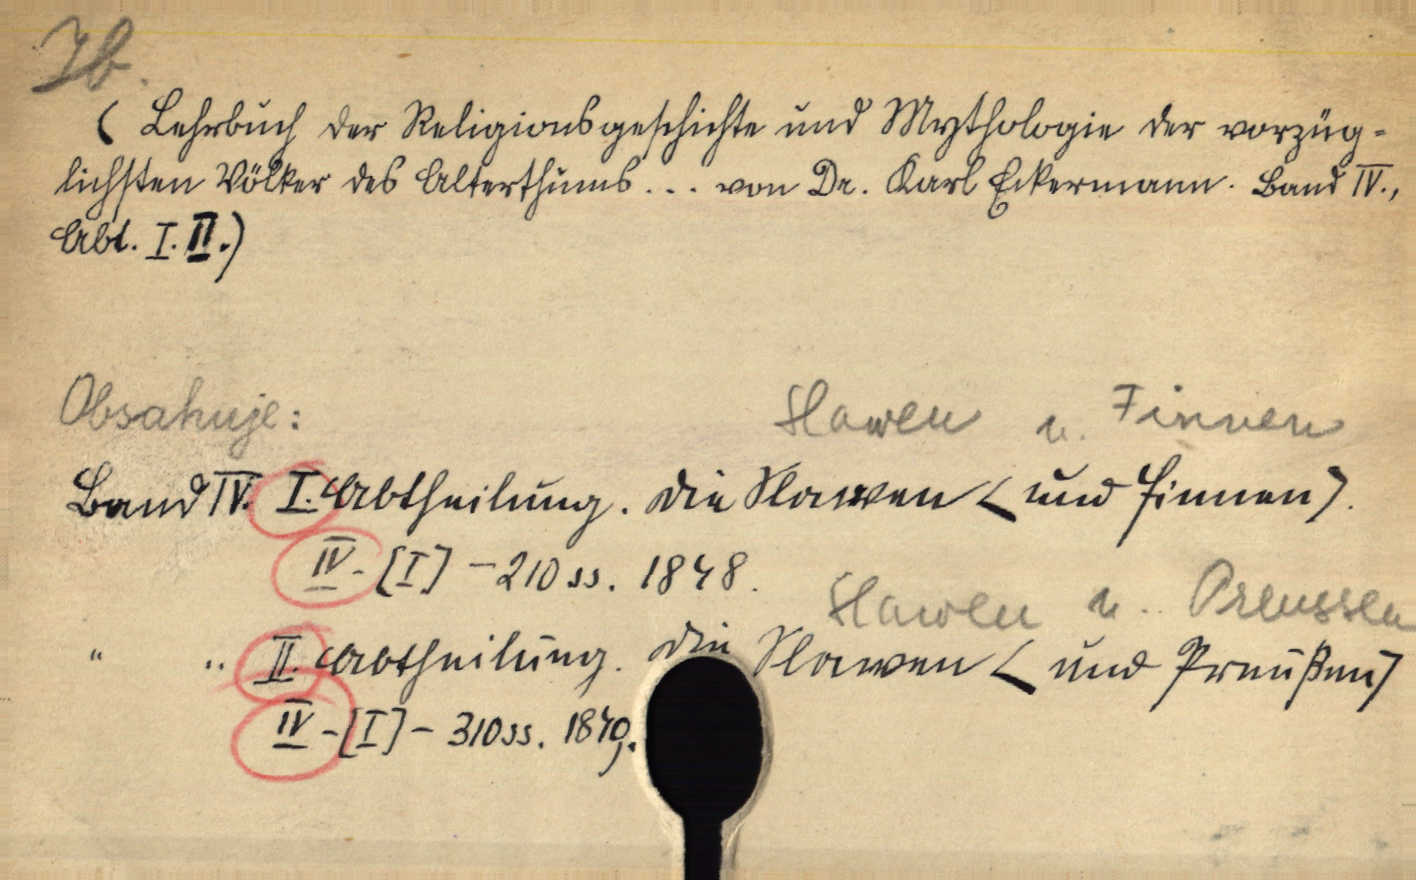 Ib.
( Lehrbuch der Religionsgeschichte und Mythologie der vorzüg-
lichsten Völker des Alterthums... von Dr. Karl Eckermann. Band IV.,
Abt. I. II.)
Obsahuje:
Slawen u. Finnen
Band IV. I. Abtheilung. Die Slawen (und Finnen).
IV - [I] - 210 ss. 1848.
Slawen u. Preussen
" " II. Abtheilung. Die Slawen (und Preußen)
IV - [I] - 310 ss. 1849.